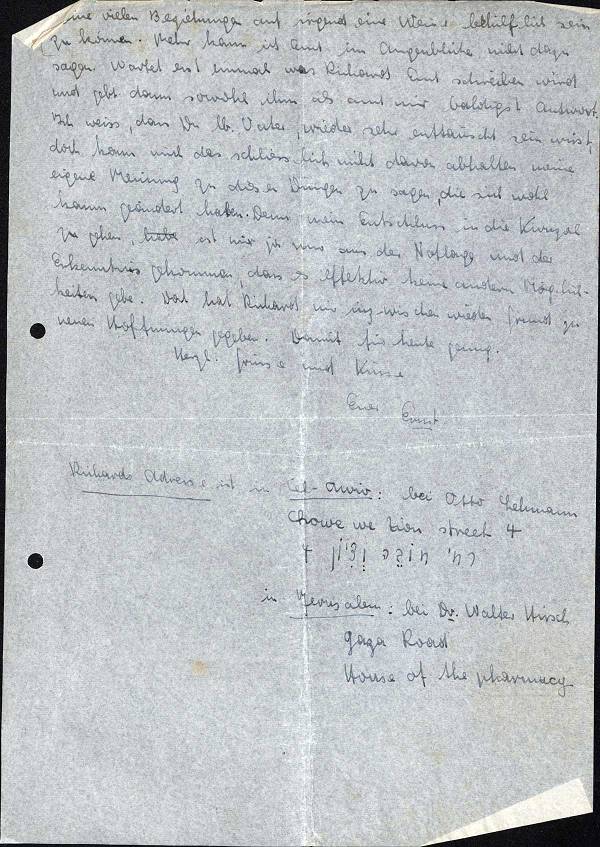 seine vielen Beziehungen auf irgend eine Weise behilflich sein
zu können. Mehr kann ich Euch im Augenblicke nicht dazu
sagen. Wartet erst einmal was Richard Euch schreiben wird
und gebt dann sowohl ihm als auch mir baldigst Antwort.
Ich weiss, dass Du lb. Vater, wieder sehr enttäuscht sein wirst,
doch kann mich das schliesslich nicht davon abhalten meine
eigene Meinung zu diesen Dingen zu sagen, die sich wohl
kaum geändert haben. Denn mein Entschluss in die
zu gehen, ist mir ja nur aus der Notlage und der
Erkenntnis gekommen, dass es effektiv keine andern Möglich-
keiten gebe. Dort hat Richard mir inzwischen wieder Grund zu
neuen Hoffnungen gegeben. Damit für heute genug.
Herzl. Grüsse und Küsse
Euer Ernst
Richards Adresse ist in Tel-Awiw: bei Otto Lehmann
Chowewe Zion street 4
רח' חובבי ציון 4
in Jerusalem: bei Dr. Walter Hirsch
Gaza Road
House of the pharmacy